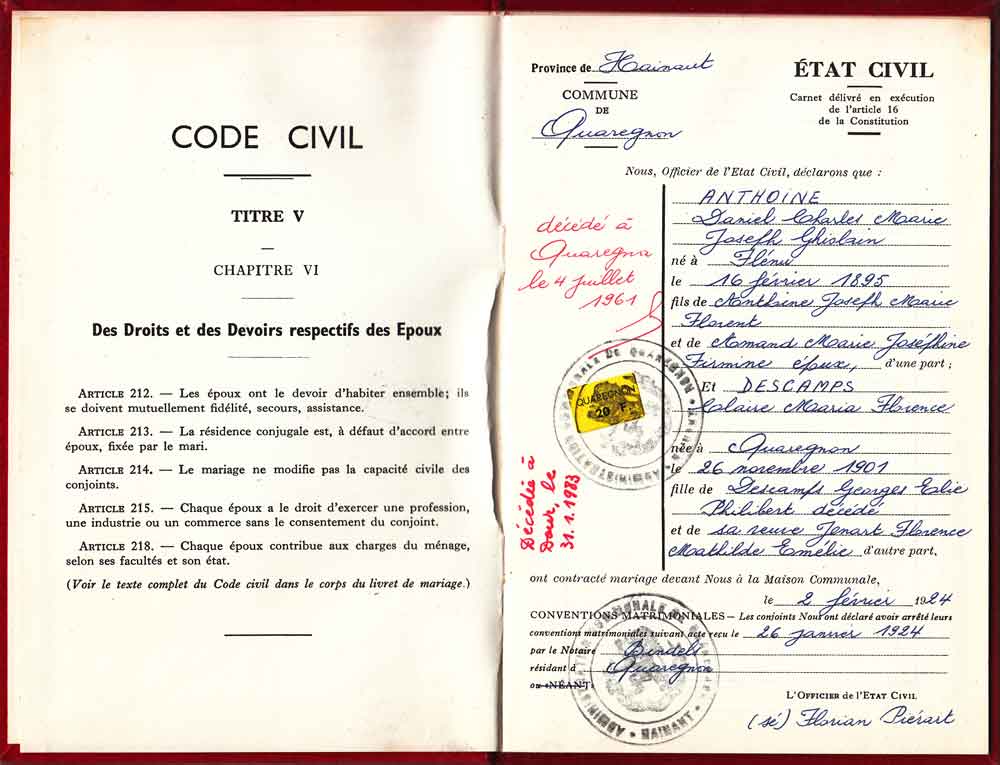 CODE CIVIL
TITRE V
CHAPITRE VI
Des Droits et des Devoirs respectifs des Epoux
ARTICLE 212. — Les époux ont le devoir d'habiter ensemble ; ils
se doivent mutuellement fidélité, secours, assistance.
ARTICLE 213. — La résidence conjugale est, à défaut d'accord entre
époux, fixée par le mari.
ARTICLE 214. — Le mariage ne modifie pas la capacité civile des
conjoints.
ARTICLE 215. — Chaque époux a le droit d'exercer une profession,
une industrie ou un commerce sans le consentement du conjoint.
ARTICLE 218. — Chaque époux contribue aux charges du ménage,
selon ses facultés et son état.
(Voir le texte complet du Code civil dans le corps du livret de mariage.)
Province de Hainaut
COMMUNE
DE
Quaregnon
ÉTAT CIVIL
Carnet délivré en exécution
de l'article 16
de la Constitution
Nous, Officier de l'Etat Civil, déclarons que :
ANTHOINE
Daniel Charles Marie
Joseph Ghislain
né à Flénu
le 16 février 1895
fils de Anthoine Joseph Marie
Florent
et de Armand Marie Joséphine
Firmine époux, d'une part ;
Et DESCAMPS
Claire Maria Florence
née à Quaregnon
le 26 novembre 1901
fille de Descamps Georges Elie
Philibert décédé
et de sa veuve Jenart Florence
Mathilde Emélie d'autre part,
décédé à
Quaregnon
le 4 juillet
1961
QUAREGNON
20 F
ADMINISTRATION COMMUNALE DE QUAREGNON * HAINAUT *
Décédée à
Dour, le
31.1.1983
ont contracté mariage devant Nous à la Maison Communale,
le 2 février 1924
CONVENTIONS MATRIMONIALES — Les conjoints Nous ont déclaré avoir arrêté leurs
conventions matrimoniales suivant acte reçu le 26 janvier 1924
par le Notaire Bindels
résidant à Quaregnon
ou «NÉANT»
ADMINISTRATION COMMUNALE DE QUAREGNON * HAINANT *
L'OFFICIER de l'ETAT CIVIL
(sé) Florian Piérart